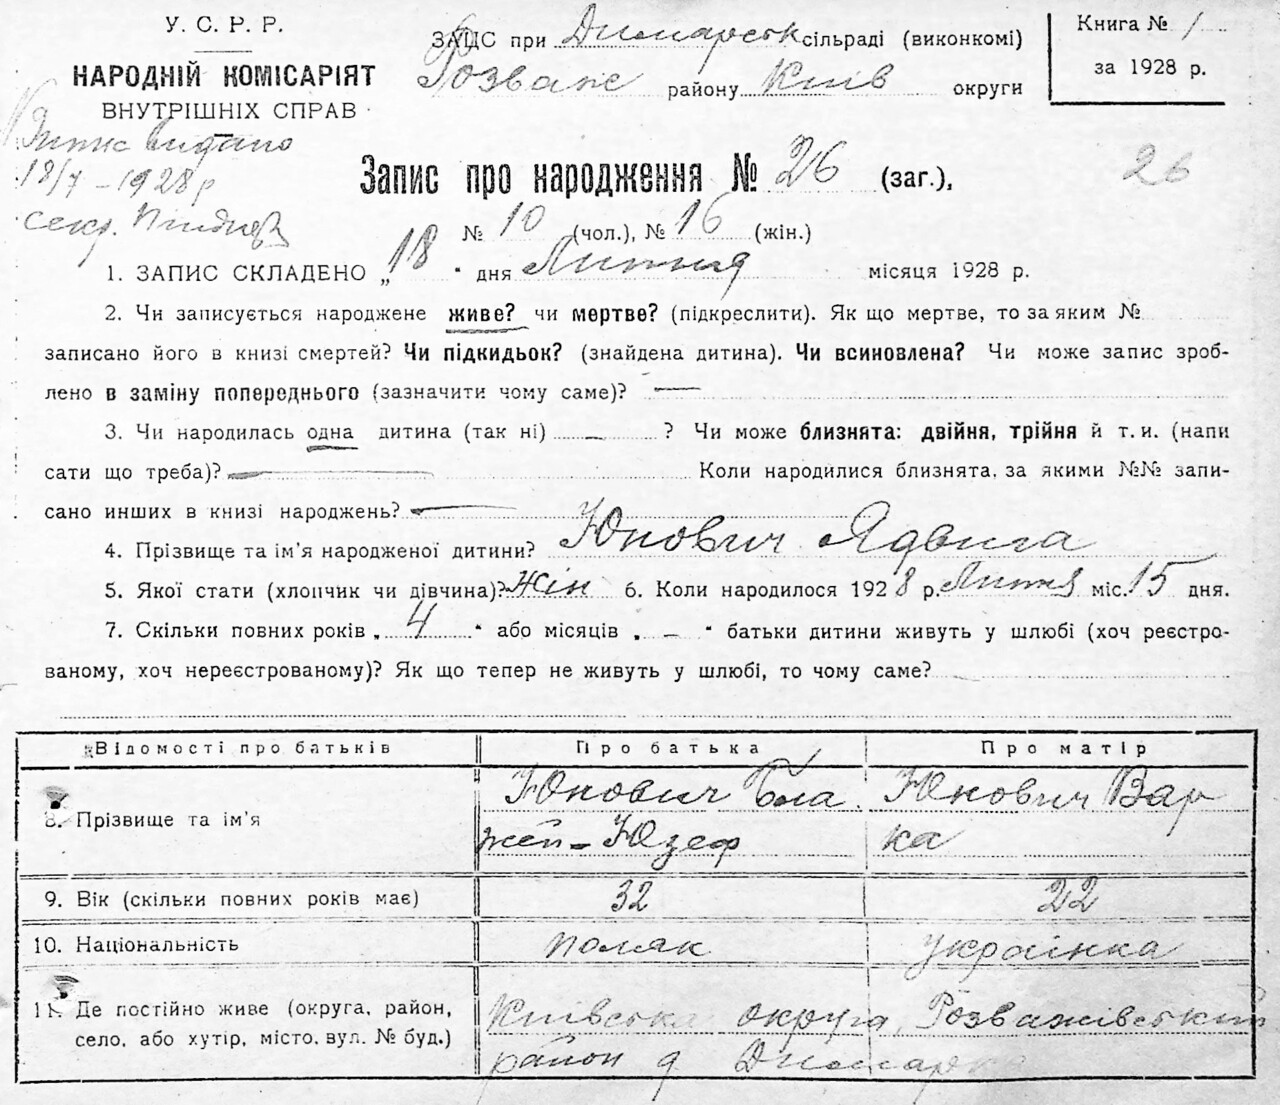 У. С. Р. Р.
НАРОДНІЙ КОМІСАРІЯТ
ВНУТРІШНІХ СПРАВ
Випис видано
18/7 – 1928 р
секр.
ЗАЦС при Димарськ сільраді (виконкомі)
Розваж району Київ округи
Книга № 1
за 1928 р.
Запис про народження № 26 (заг.),
26
№ 10 (чол.), № 16 (жін.)
1. ЗАПИС СКЛАДЕНО „18" дня Липня місяця 1928 р.
2. Чи записується народжене живе? чи мертве? (підкреслити). Як що мертве, то за яким №
записано його в книзі смертей? Чи підкидьок? (знайдена дитина). Чи всиновлена? Чи може запис зроб-
лено в заміну попереднього (зазначити чому саме)? —
3. Чи народилась одна дитина (так ні) – ? Чи може близнята: двійня, трійня й т. и. (напи
сати що треба)? — Коли народилися близнята, за якими №№ запи-
сано инших в книзі народжень? —
4. Прізвище та ім'я народженої дитини? Юнович Ядвига
5. Якої стати (хлопчик чи дівчина)? Жін 6. Коли народилося 1928 р. Липня міс. 15 дня.
7. Скільки повних років „4" або місяців „–" батьки дитини живуть у шлюбі (хоч реєстро-
ваному, хоч нереєстрованому)? Як що тепер не живуть у шлюбі, то чому саме?
Відомості про батьків Про батька Про матір
8. Прізвище та ім'я Юнович Бла Юнович Вар
жей-Юзеф ка
9. Вік (скільки повних років має) 32 22
10. Національність поляк українка
11. Де постійно живе (округа, район, Київська округа, Розважівський
село, або хутір, місто, вул. № буд.) район д Димарка